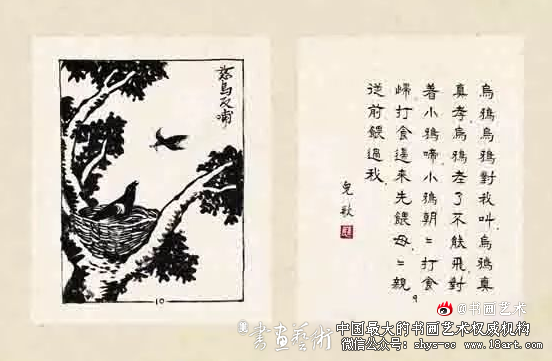 慈烏反哺
10
烏鴉烏鴉對我叫烏鴉真
真孝烏鴉老了不能飛對
著小鴉啼小鴉朝〻打食
歸打食歸來先餵母〻親
從前餵過我
9
@书画艺术
書畫藝術
中国最大的书画艺术权威机构
微信公众号：shys-cc www.18art.com